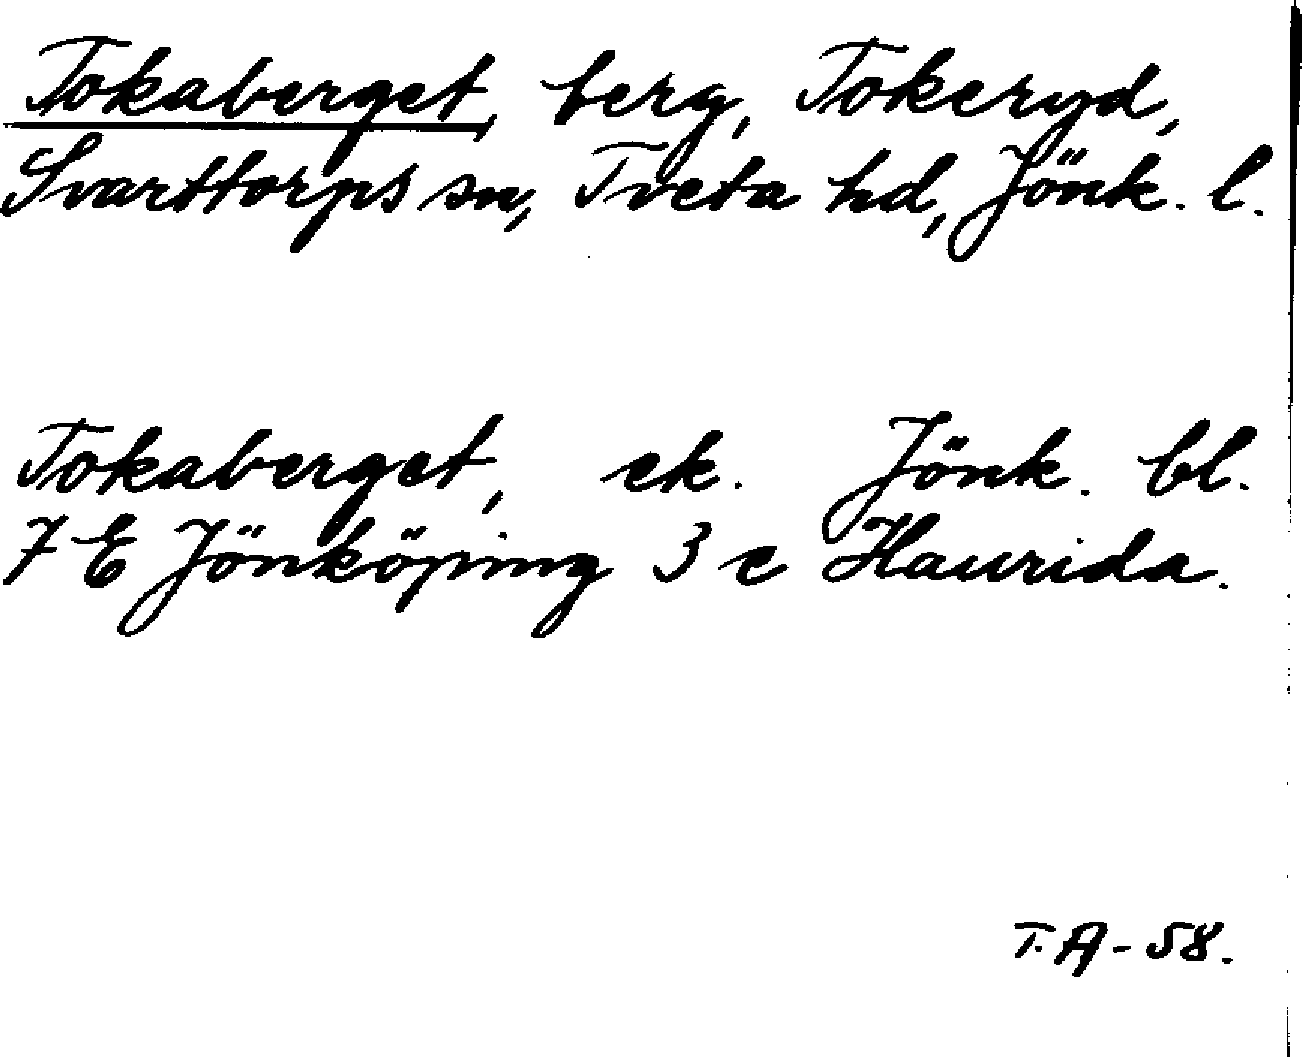 Tokaberget, berg, Tokeryd,
Svarttorps sn, Tveta hd, Jönk. l.
Tokaberget, ek. Jönk. bl.
7 E Jönköping 3 e Haurida.
T.A-58.